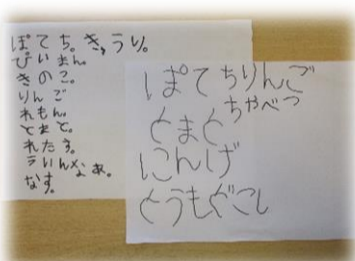 ぽてち。きゅうり。
ぴいまん。
きのこ。
りんご
れもん。
とまと。
れたす。
ういんなあ。
なす。
ぽてちりんご
ちゃべつ
とまと
にんげ
とうもぐこし